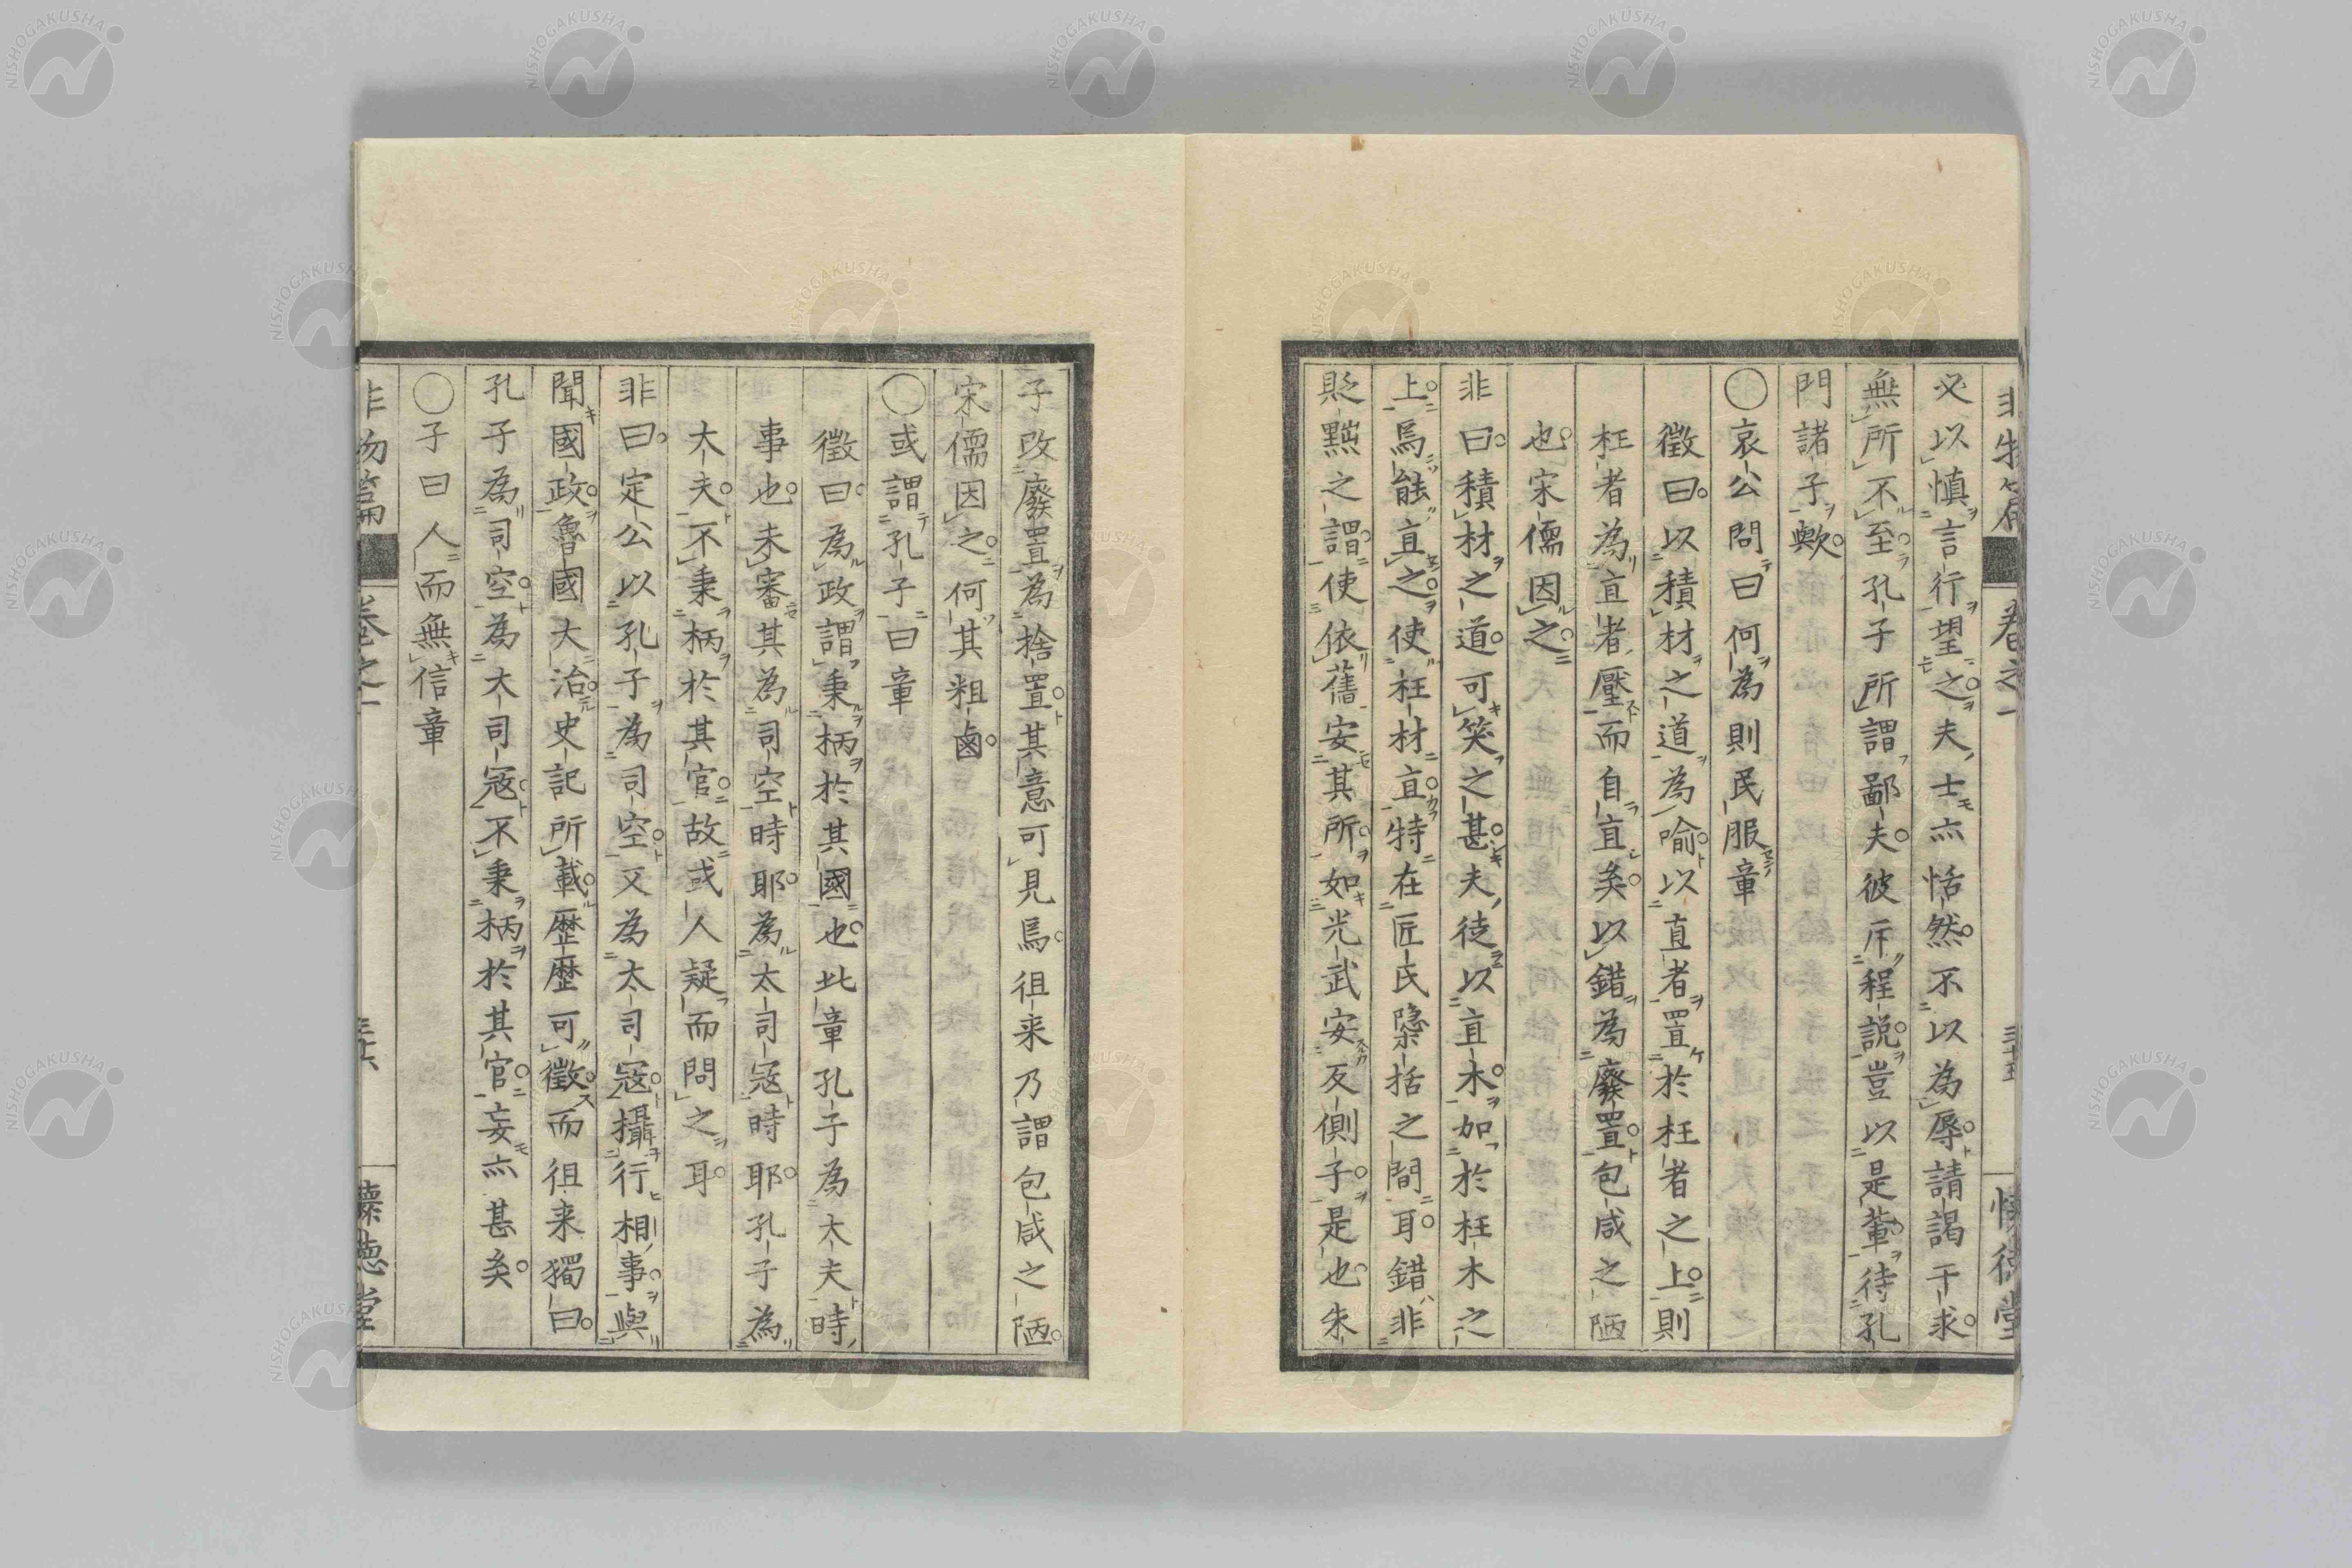 非物篇 卷之一 三十五 懷德堂
必以慎言行望之夫士亦恬然不以為辱請謁干求
無所不至孔子所謂鄙夫彼斥程說豈以是輩待孔
門諸子歟
○哀公問曰何為則民服章
徵曰以積材之道為喻以直者置於枉者之上則
枉者為直者壓而自直矣以錯為廢置包咸之陋
也宋儒因之
非曰積材之道可笑之甚夫徒以直木如於枉木之
上焉能直之使枉材直特在匠氏檃括之間耳錯非
貶黜之謂使依舊安其所如光武安反側子是也朱
子改廢置為捨置其意可見焉徂来乃謂包咸之陋
宋儒因之何其粗鹵
○或謂孔子曰章
徵曰為政謂秉柄於其國也此章孔子為大夫時
事也未審其為司空時耶為太司寇時耶孔子為
大夫不秉柄於其官故或人疑而問之耳
非曰定公以孔子為司空又為太司寇攝行相事與
聞國政魯國大治史記所載歷歷可徵而徂来獨曰
孔子為司空為大司寇不秉柄於其官妄亦甚矣
○子曰人而無信章
非物篇 卷之一 懷德堂